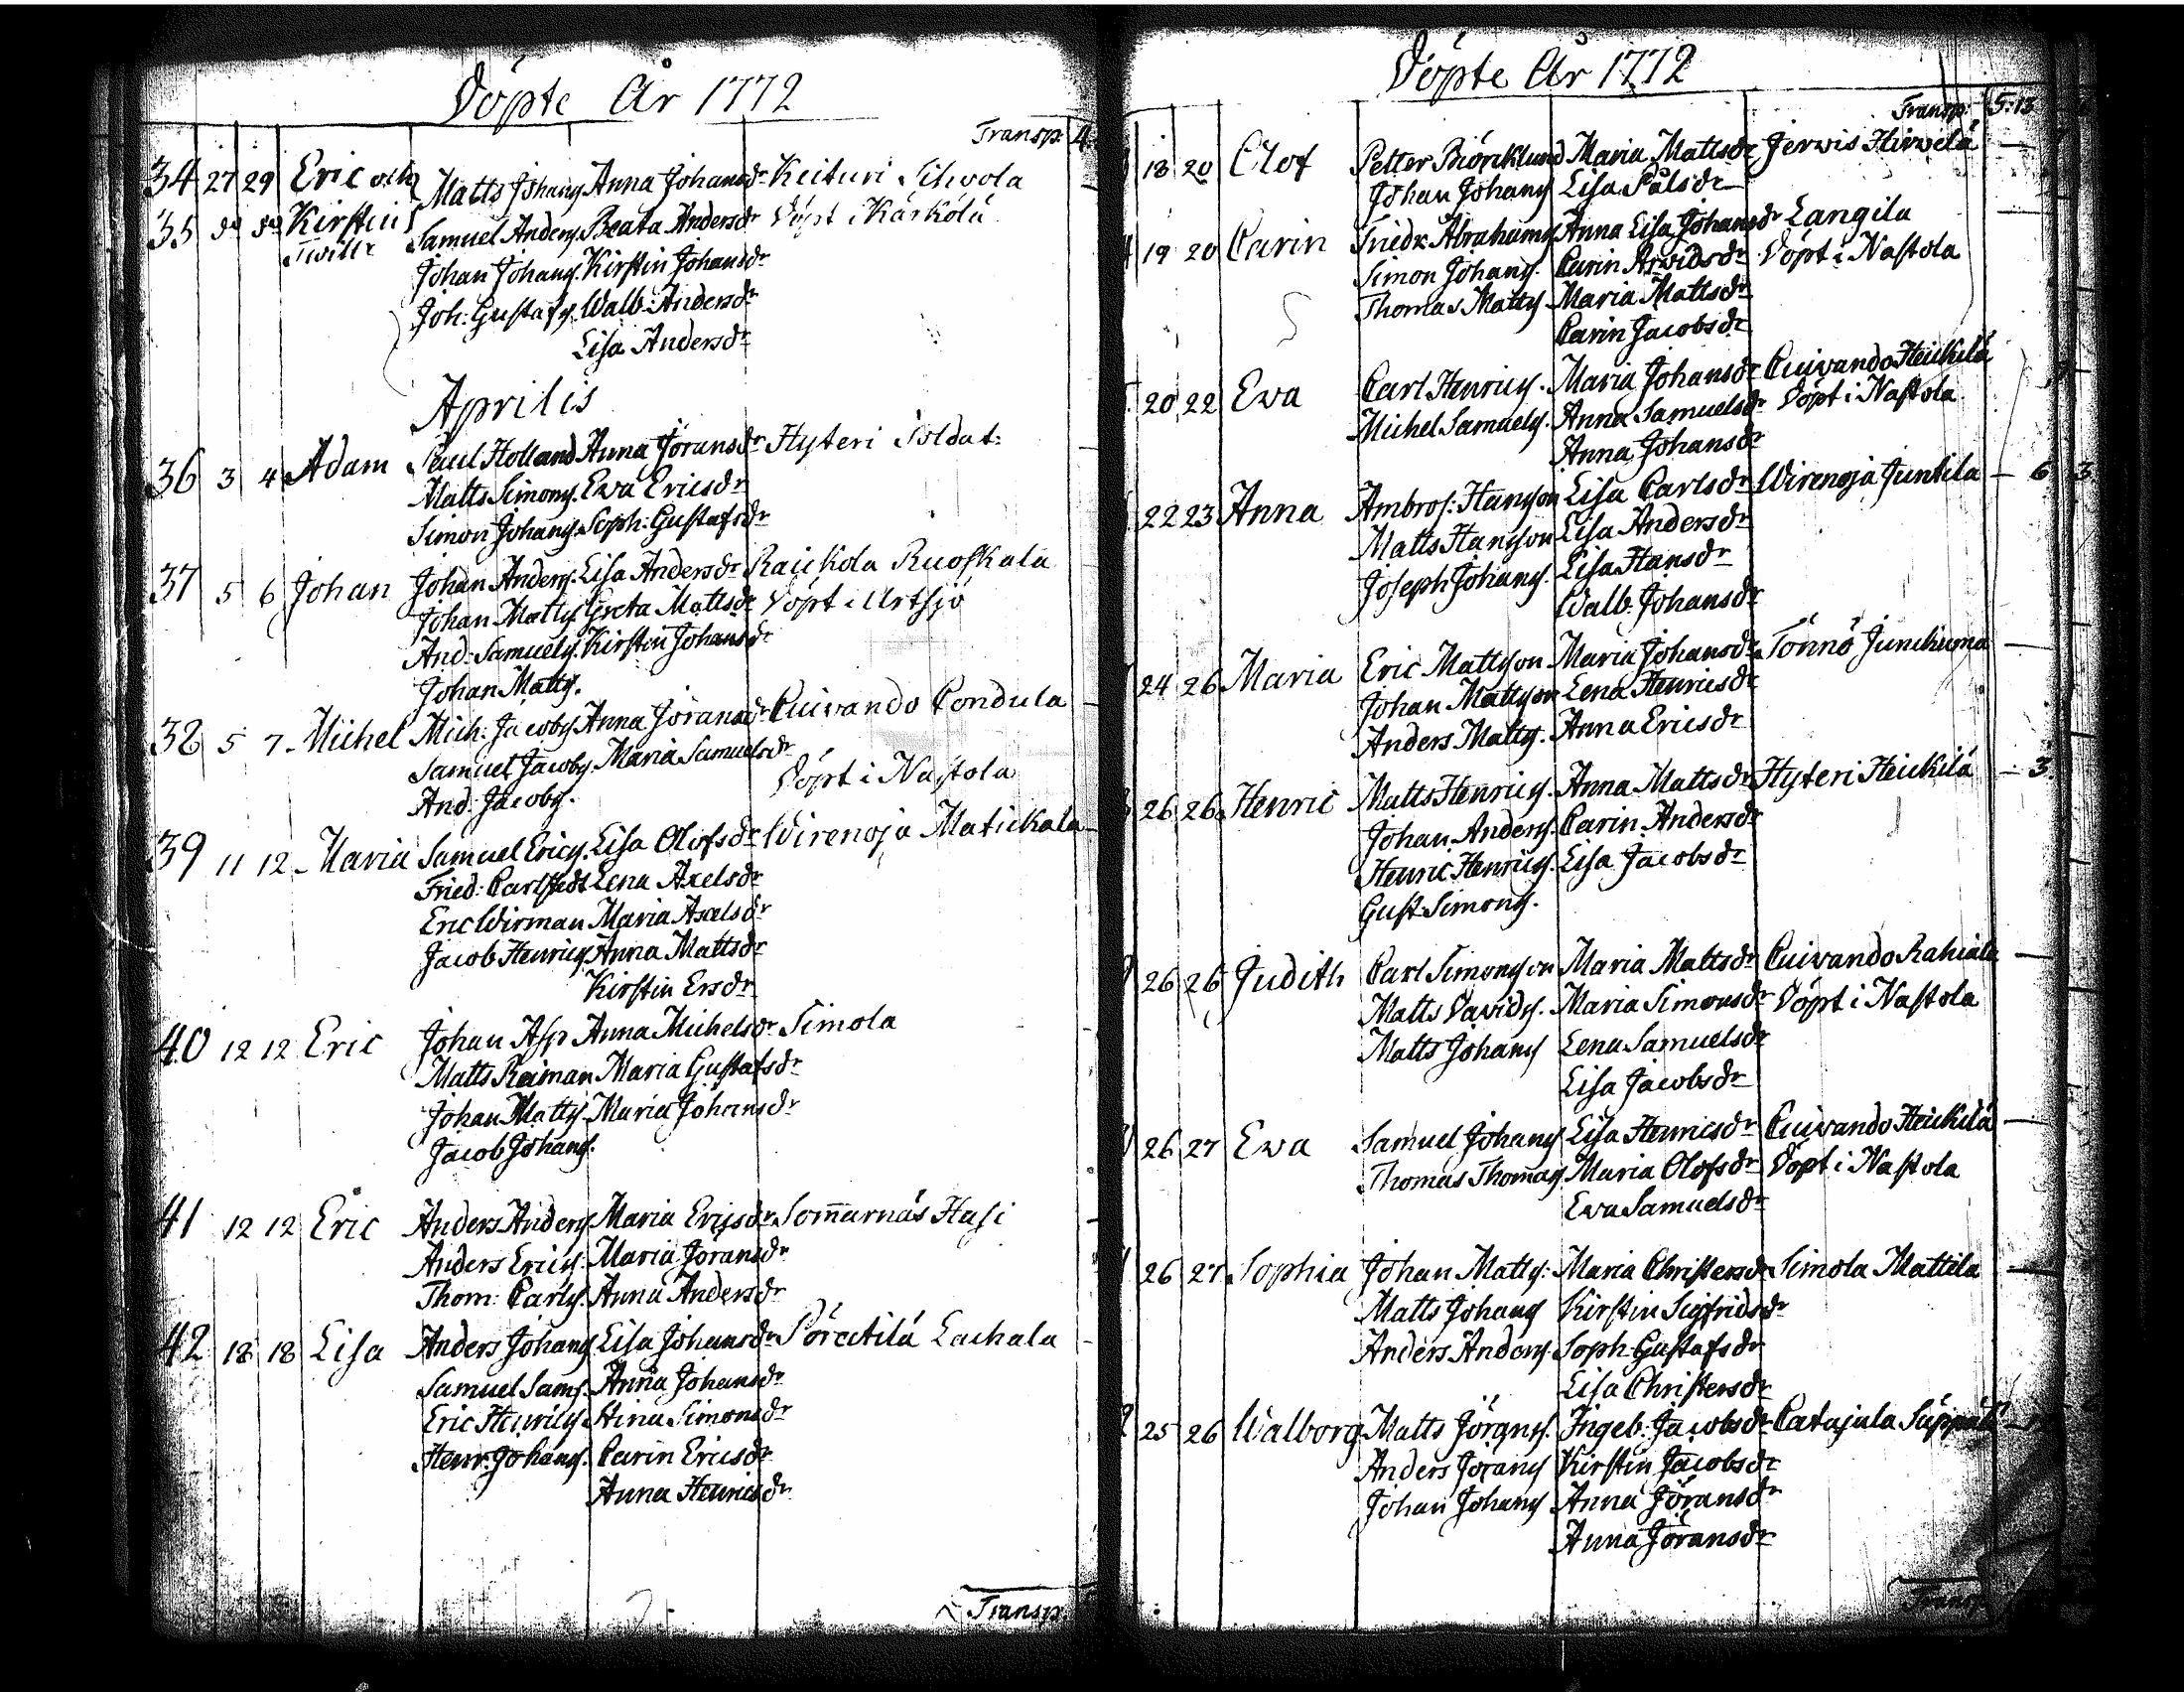 Döpte År 1772
Transp. 4
34 27 29 Eric och Matts Johans. Anna Johansdr Keituri Silwola
35 do do Kirstin Samuel Anders. Beata Andersdr Döpt i Kärkölä
Twill:r Johan Johans. Kirstin Johansdr
Joh: Gustafs. Walb: Andersdr
Lisa Andersdr
Aprilis
36 3 4 Adam Paul Holland Anna Jöransdr Hyteri Soldat:
Matts Simons. Ewa Ericsdr
Simon Johans. Soph: Gustafsdr
37 5 6 Johan Johan Anders. Lisa Andersdr Raickola Ruoskala
Johan Matts. Greta Mattsdr Döpt i Artsjö
And: Samuels. Kirstin Johansdr
Johan Matts.
38 5 7 Michel Mich: Jacobs. Anna Jöransdr Cuivando Pondula
Samuel Jacobs. Maria Samuelsdr
And: Jacobs. Döpt i Nastola
39 11 12 Maria Samuel Erics. Lisa Olofsdr Wirenoja Matickala
Fried: Carlstedt Lena Axelsdr
Eric Wirman Maria Axelsdr
Jacob Henrics. Anna Mattsdr
Kirstin Ersdr
40 12 12 Eric Johan Asp Anna Michelsdr Simola
Matts Reiman Maria Gustafsdr
Johan Matts. Maria Johansdr
Jacob Johans.
41 12 12 Eric Anders Anders. Maria Ericsdr Som̄arnäs Hasi
Anders Erics. Maria Jöransdr
Thom: Carls. Anna Andersdr
42 18 18 Lisa Anders Johans. Lisa Johansdr Lachala
Samuel Sams. Anna Johansdr
Eric Henrics. Stina Simonsdr
Henr: Johans. Carin Ericsdr
Anna Henricsdr
Transp.
Döpte År 1772
Transp: 5:13
18 20 Olof Petter Biörcklund Maria Mattsdr Jerwis Hirwelä
Johan Johans. Lisa Pålsdr
19 20 Carin Friedr: Abrahams. Anna Lisa Johansdr Langila
Simon Johans. Carin Arwidsdr Döpt i Nastola
Thomas Matts. Maria Mattsdr
Carin Jacobsdr
20 22 Ewa Carl Henrics. Maria Johansdr Cuivando Heickilä
Michel Samuels. Anna Samuelsdr Döpt i Nastola
Anna Johansdr
22 23 Anna Ambros: Hansson Lisa Carlsdr Wirenoja Juntila 6 3
Matts Hansson Lisa Andersdr
Joseph Johans. Lisa Hansdr
Walb: Johansdr
24 26 Maria Eric Mattsson Maria Johansdr Tönnö Junckuma
Johan Mattsson Lena Henricsdr
Anders Matts. Anna Ericsdr
26 26 Henric Matts Henrics. Anna Mattsdr Hyteri Heickilä 3
Johan Anders. Carin Andersdr
Henric Henrics. Lisa Jacobsdr
Gust: Simons.
26 26 Judith Carl Simonsson Maria Mattsdr Cuivando Rahiala
Matts Davids. Maria Simonsdr Döpt i Nastola
Matts Johans. Lena Samuelsdr
Lisa Jacobsdr
26 27 Ewa Samuel Johans. Lisa Henricsdr Cuivando Heickilä
Thomas Thomas. Maria Olofsdr Döpt i Nastola
Ewa Samuelsdr
26 27 Sophia Johan Matts: Maria Christersdr Simola Mattila
Matts Johans. Kirstin Sigfridsdr
Anders Anders. Soph: Gustafsdr
Lisa Christersdr
25 26 Walborg Matts Jörans. Ingeb: Jacobsdr Catajala
Anders Jörans. Kirstin Jacobsdr
Johan Johans. Anna Jöransdr
Anna Jöransdr
Transp.